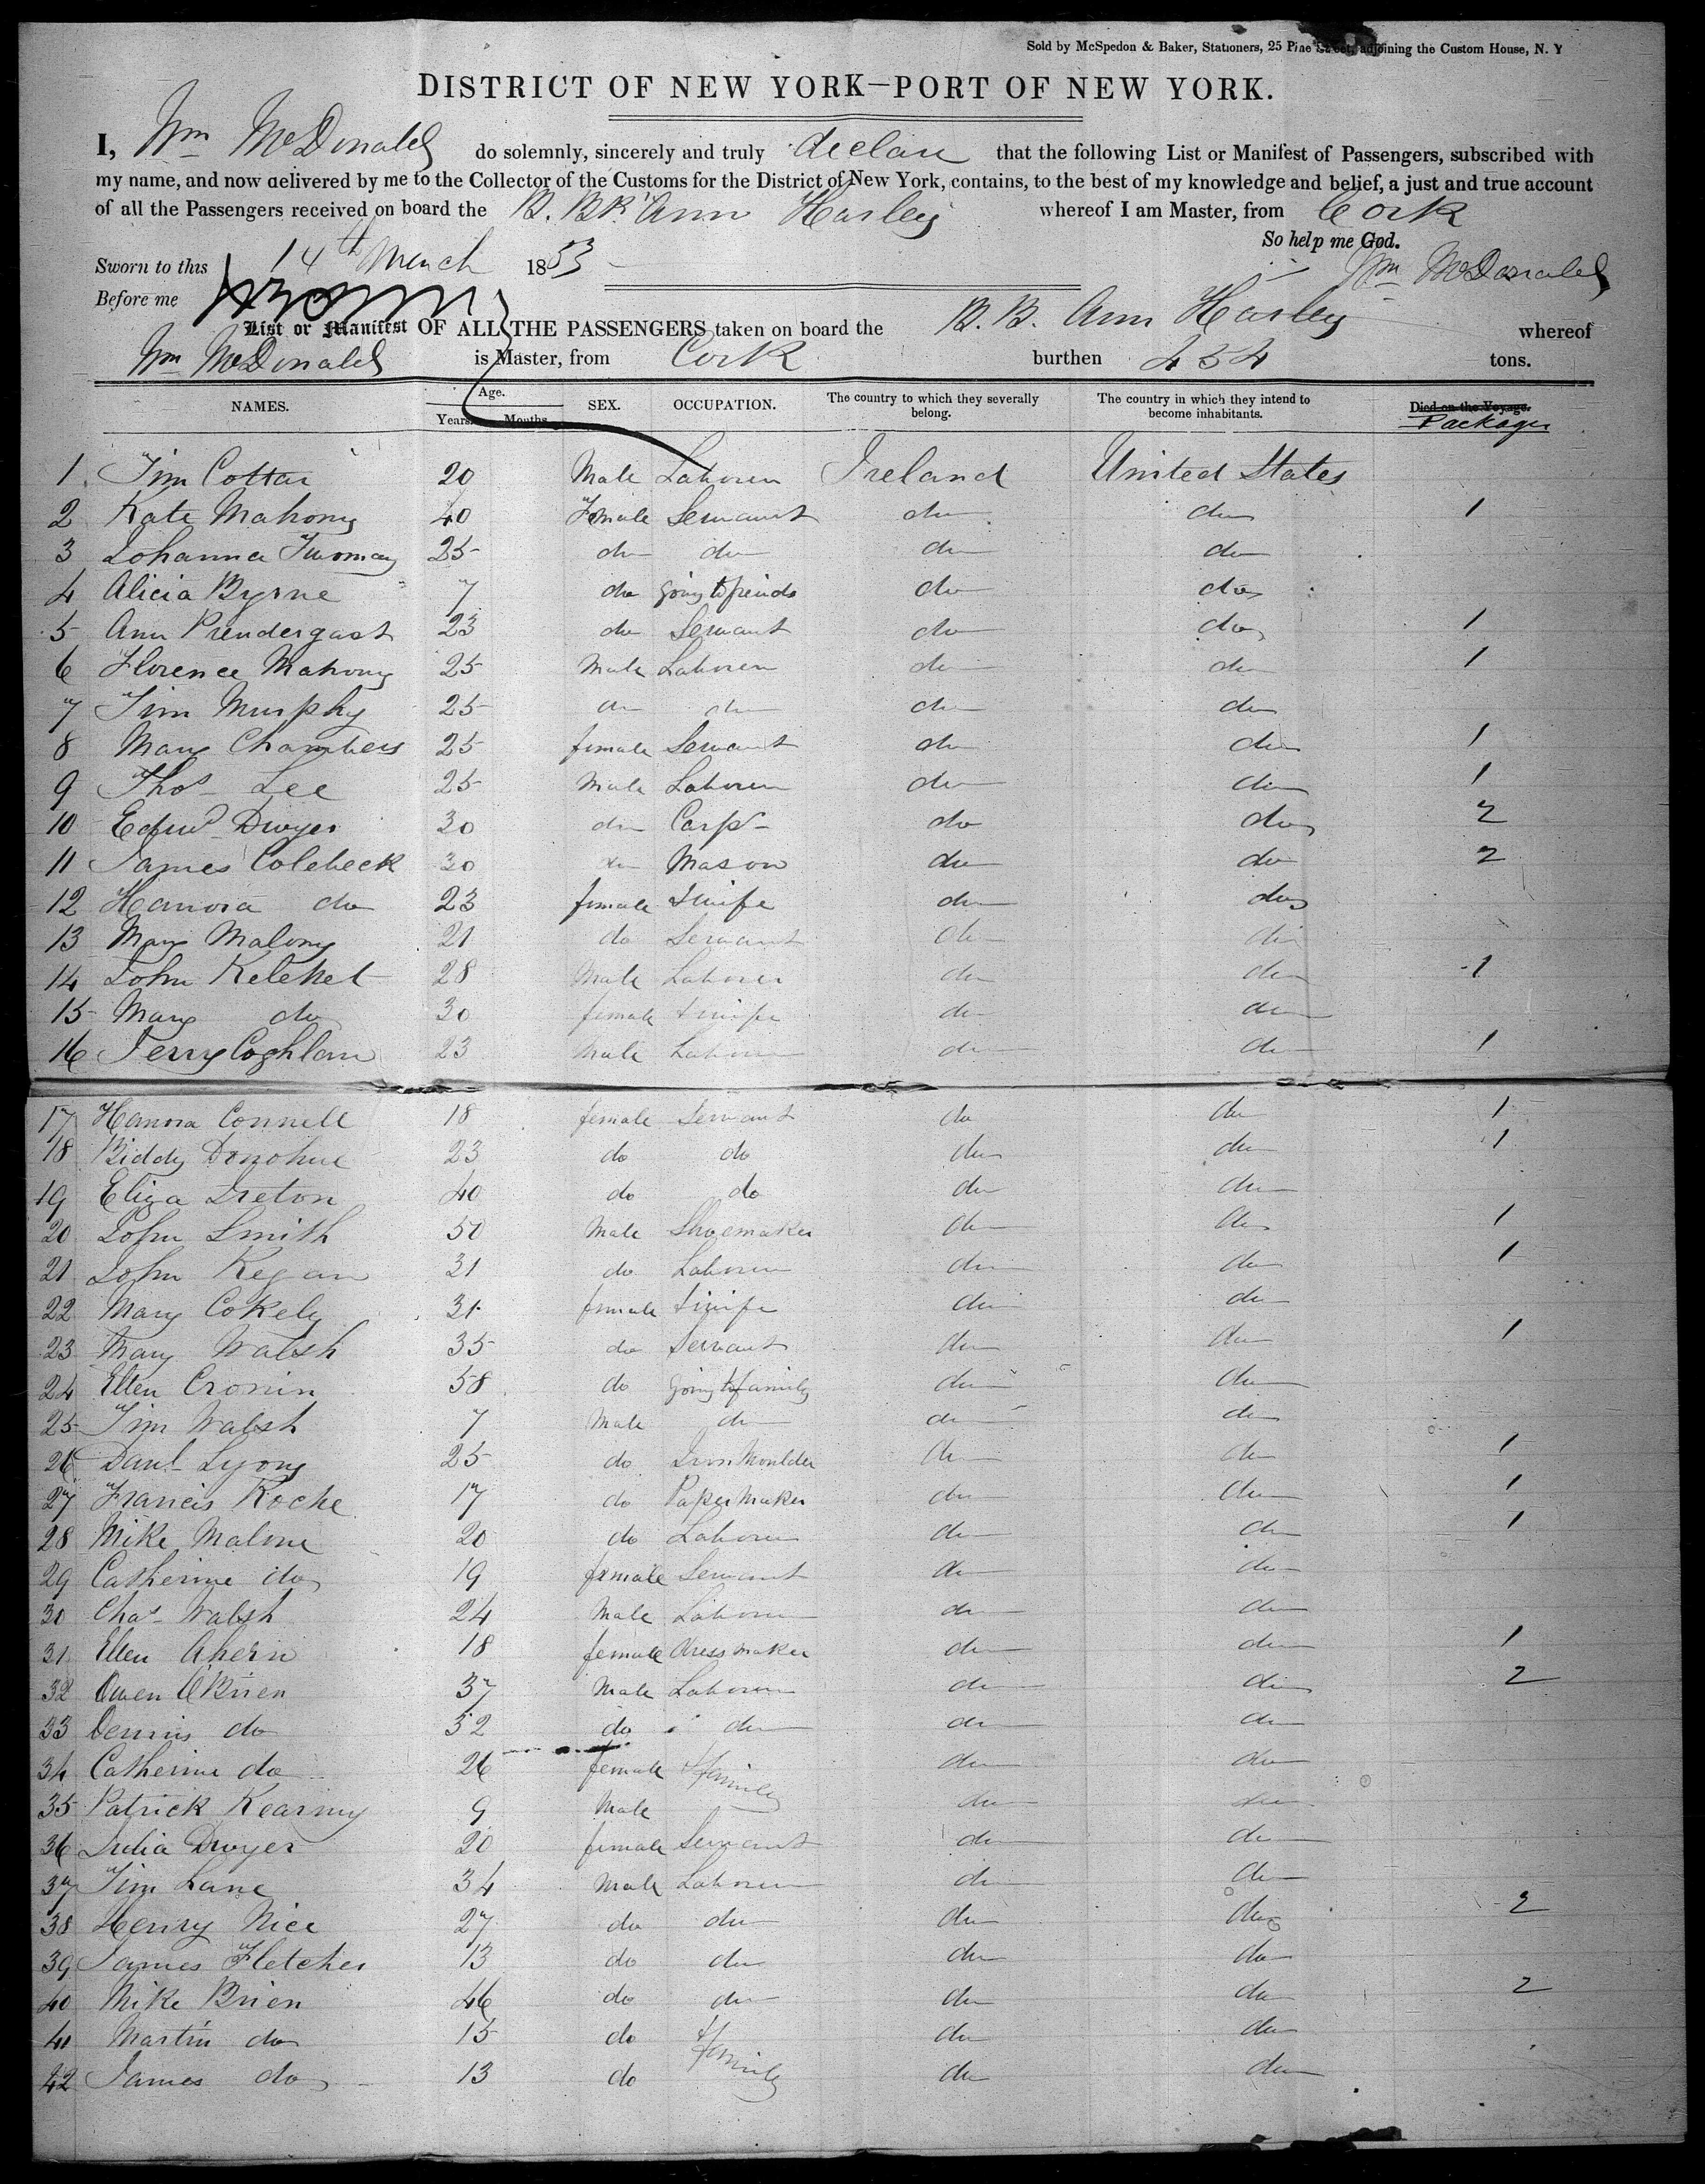 Sold by McSpedon & Baker, Stationers, 25 Pine Street, adjoining the Custom House, N. Y
DISTRICT OF NEW YORK—PORT OF NEW YORK.
I, Wm McDonald do solemnly, sincerely and truly declare that the following List or Manifest of Passengers, subscribed with
my name, and now delivered by me to the Collector of the Customs for the District of New York, contains, to the best of my knowledge and belief, a just and true account
of all the Passengers received on board the B. Bk Ann Harley whereof I am Master, from Cork
So help me God.
Sworn to this 14th March 1853 Wm McDonald
Before me
List or Manifest OF ALL THE PASSENGERS taken on board the B. B. Ann Harley whereof
Wm McDonald is Master, from Cork burthen 454 tons.
NAMES. Age. Years. Months. SEX. OCCUPATION. The country to which they severally belong. The country in which they intend to become inhabitants. Died on the Voyage. Packages
1 Tim Cottar 20 Male Laborer Ireland United States
2 Kate Mahony 40 Female Servant do do 1
3 Johanna Twomay 25 do do do do
4 Alicia Byrne 7 do going to friends do do
5 Ann Prendergast 23 do Servant do do 1
6 Florence Mahony 25 Male Laborer do do 1
7 Tim Murphy 25 do do do do
8 Mary Chambers 25 female Servant do do 1
9 Thos Lee 25 Male Laborer do do 1
10 Edwd Dwyer 30 do Carpr do do 2
11 James Colebeck 30 do Mason do do 2
12 Hanora do 23 female wife do do
13 Mary Malony 21 do Servant do do
14 John Kelehel 28 Male Laborer do do 1
15 Mary do 30 female wife do do
16 Jerry Coghlan 23 Male Laborer do do 1
17 Hanora Connell 18 female Servant do do 1
18 Biddy Donohue 23 do do do do 1
19 Eliza Ireton 40 do do do do
20 John Smith 50 Male Shoemaker do do 1
21 John Regan 31 do Laborer do do 1
22 Mary Cokely 31 female wife do do
23 Mary Walsh 35 do Servant do do 1
24 Ellen Cronin 58 do going to family do do
25 Tim Walsh 7 Male do do do
26 Danl Lyons 25 do Iron Moulder do do 1
27 Francis Roche 17 do Paper Maker do do 1
28 Mike Malone 20 do Laborer do do 1
29 Catherine do 19 female Servant do do
30 Chas Walsh 24 Male Laborer do do
31 Ellen Ahern 18 female dress maker do do 1
32 Owen O'Brien 37 Male Laborer do do 2
33 Dennis do 32 do do do do
34 Catherine do 26 female family do do
35 Patrick Kearny 9 Male do do
36 Julia Dwyer 20 female Servant do do
37 Tim Lane 34 Male Laborer do do
38 Henry Nice 27 do do do do 2
39 James Fletcher 13 do do do do
40 Mike Brien 46 do do do do 2
41 Martin do 15 do family do do
42 James do 13 do do do